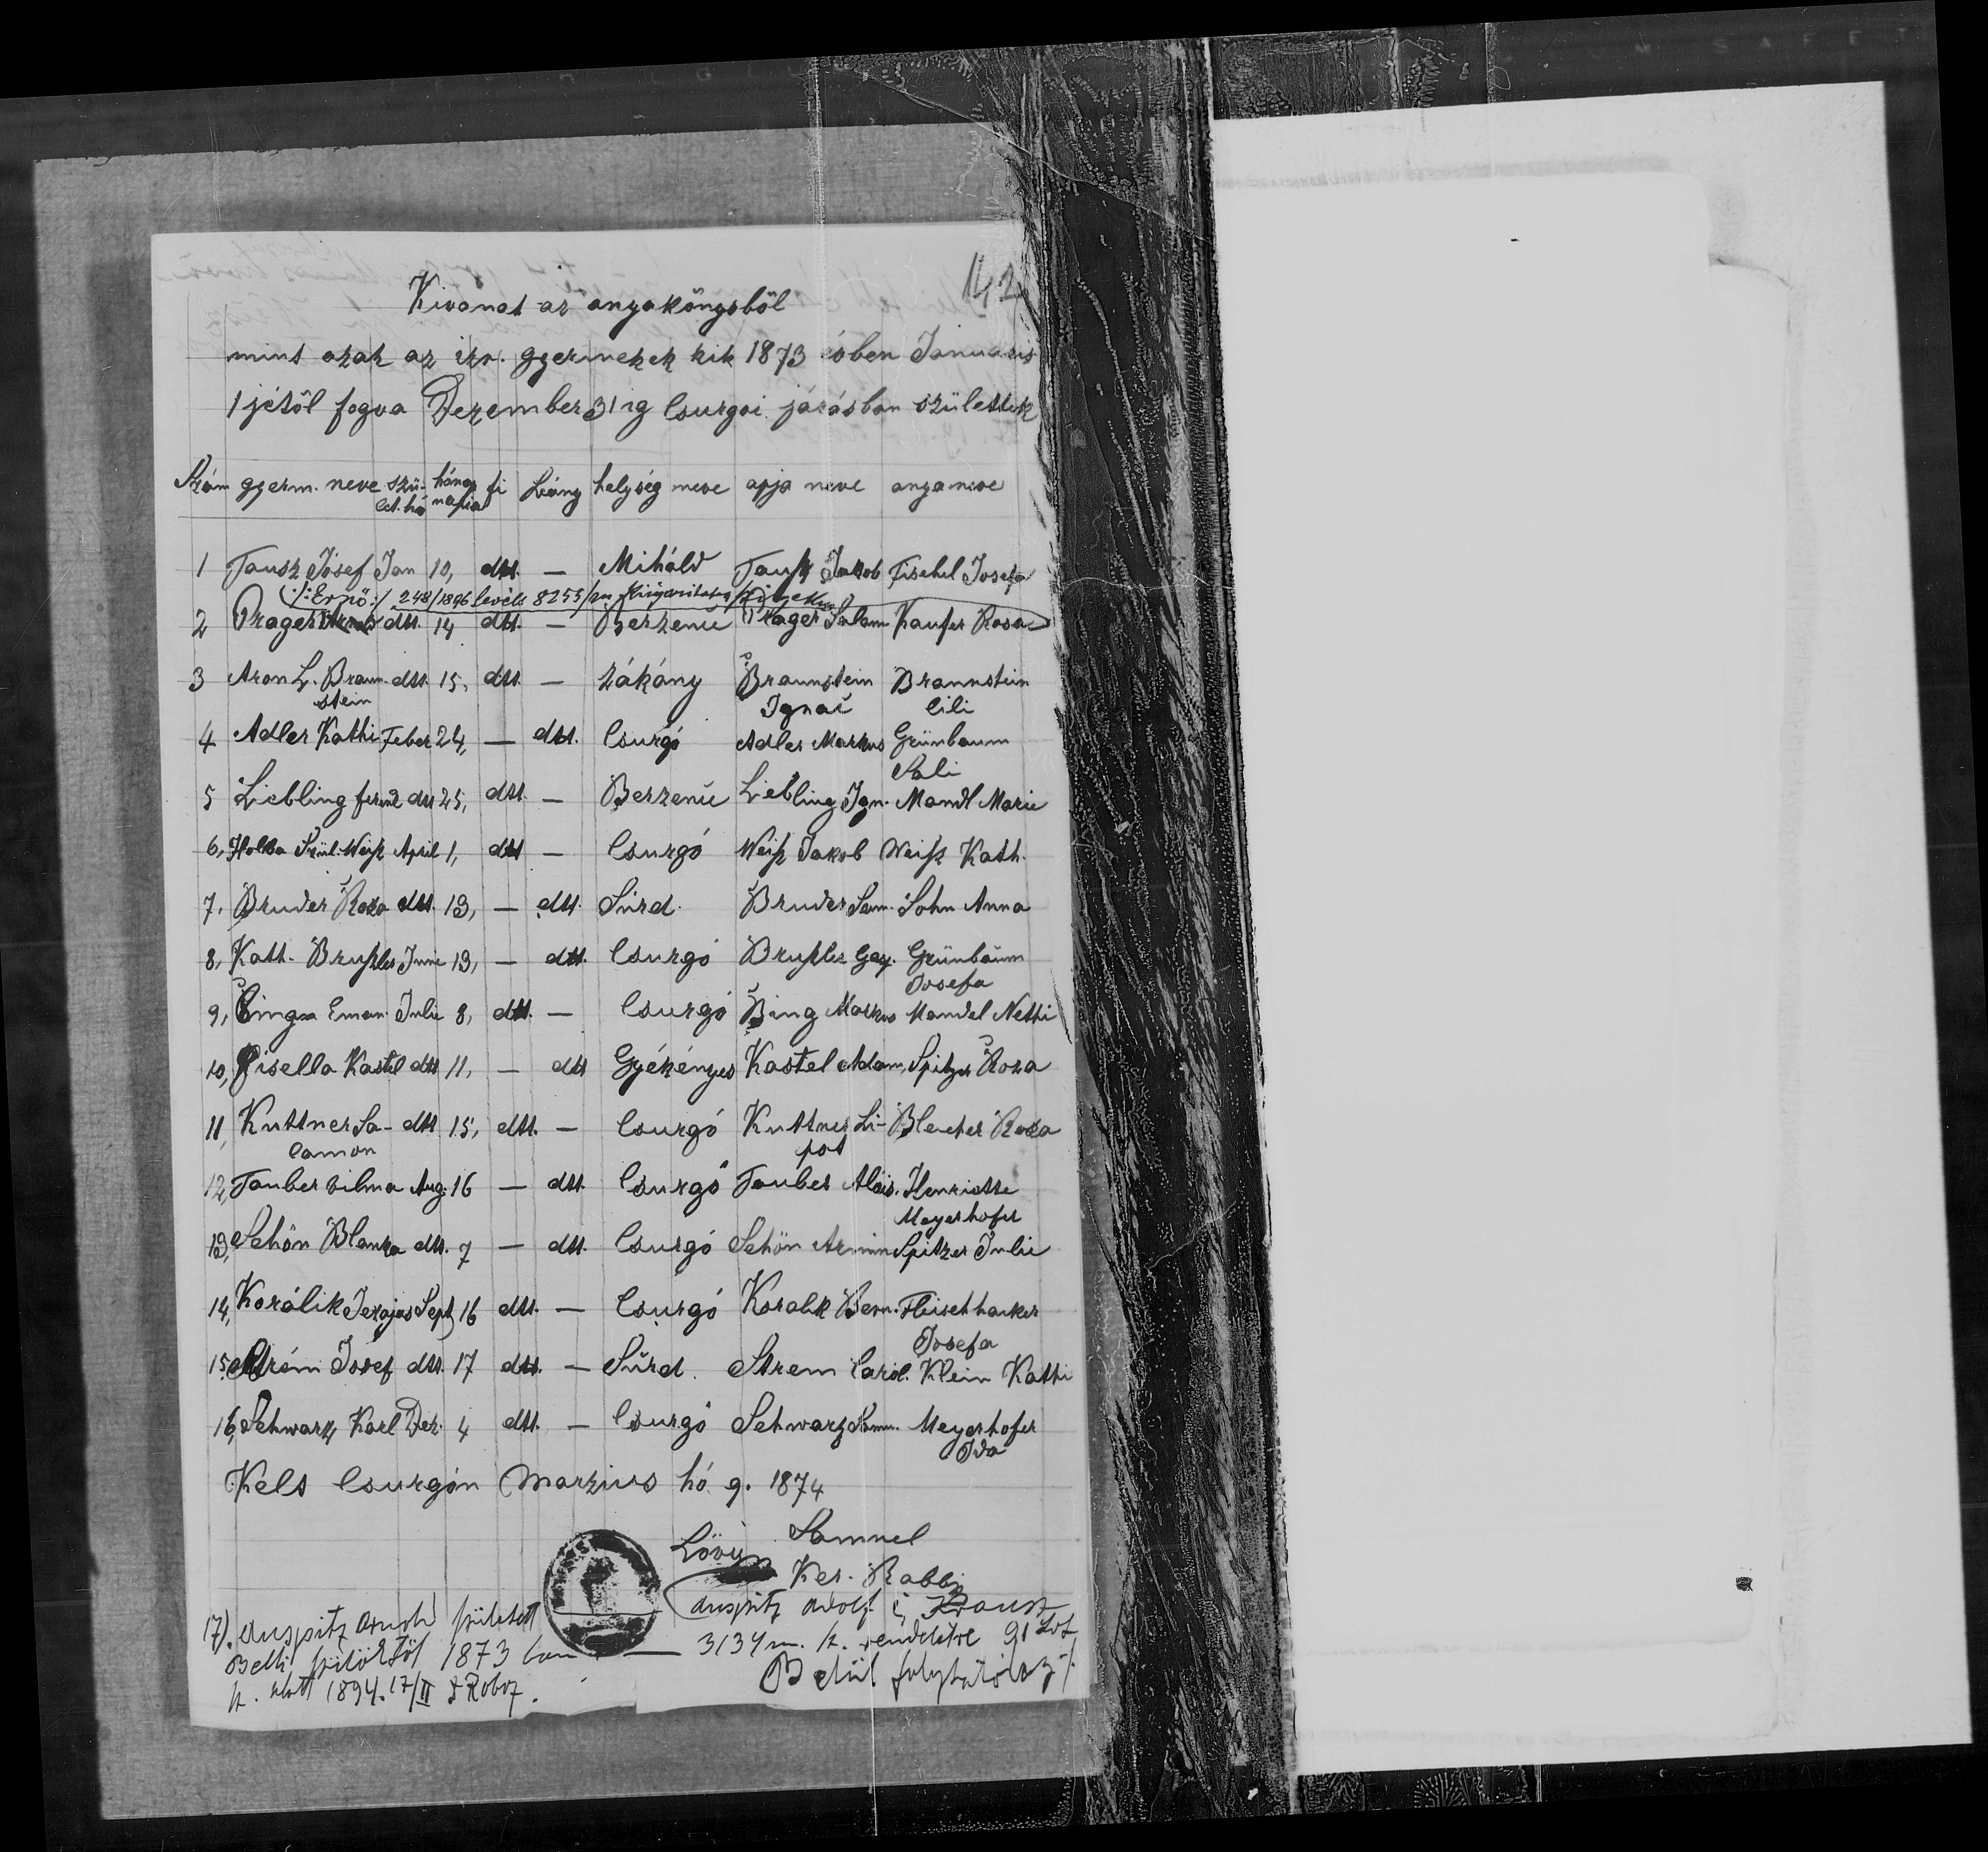 142
Kivonat az anyakönyvböl
mint azok az izr. gyermekek kik 1873 évben Januaris
1 jétöl fogva Dezember 31 ig Csurgoi járásban születtek
Szám gyerm. neve szü- hánap fi Leány helység neve apja neve anya neve
let. hó napia
1 Tausz Jósef Jan 10, dtt. — Miháld Tauß Jakob Fischel Josefa
/:Ernö:/ 248/1896 levélt 8255/
2 Prager dtt. 14 dtt. — Berzencé Prager Salam Kaufer Rosa
3 Aron L. Braun- dtt. 15, dtt. — Zákány Braunstein Braunstein
stein Ignac Cili
4 Adler Kathi Feber 24, — dtt. Csurgó Adler Markus Grünbaum
Sali
5 Liebling ferend dtt 25, dtt. — Berzencé Liebling Ign. Mandl Marie
6, Holba Szül. Weiß April 1, dtt — Csurgó Weiß Jakob Weiß Kath.
7, Bruder Roza dtt. 13, — dtt. Surd. Bruder Sam. Sohn Anna
8, Kath. Brußler Juni 13, — dtt. Csurgó Brußler Grünbaum
Josefa
9, Bing Eman. Julie 8, dtt. — Csurgó Bing Markus Mandel Netti
10, Gisella Kastel dtt 11, — dtt Gyékényes Kastel Adam, Spitzer Roza
11, Kuttner Sa- dtt 15, dtt. — Csurgó Kuttner Li- Blecher Roza
lamon pot
12, Tauber Vilma Aug. 16 — dtt. Csurgó Tauber Alois. Henriette
Meyerhofer
13, Schön Blanka dtt. 7 — dtt. Csurgó Schön Armin Spitzer Julie
14, Korálik Jezajas Sept 16 dtt. — Csurgó Koralik Bern. Fleischhacker
Josefa
15, Strém Josef dtt. 17 dtt. — Surd. Strem Carol. Klein Kathi
16, Schwartz Karl Dez. 4 dtt. — Csurgó Schwarz Samu. Meyerhofer
Ida
Kelt Csurgón Marzius hó 9. 1874
Löwy Samuel
Ker. Rabbi
17). Auspitz született Auspitz Adolf és Krausz
Betti szülöktöl 1873 ban — 3134 sz. rendelete 91
sz. alatt 1894. 17/II Roboz. Belül folytatólag ./.